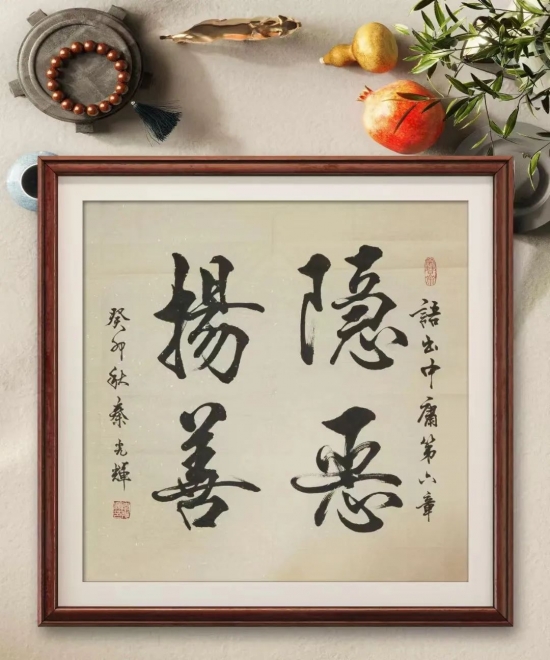 語出中庸第六章
隱惡
揚善
癸卯秋秦光輝